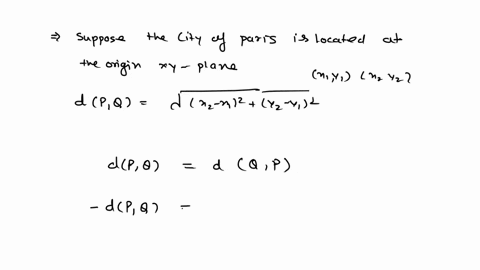 ⇒ Suppose the city of paris is located at
the origin xy-plane
(x₁,y₁) (x₂ y₂)
d (P,Q) = √(x₂-x₁)² + (y₂-y₁)²
d(P,Q) = d (Q,P)
- d(P,Q) =